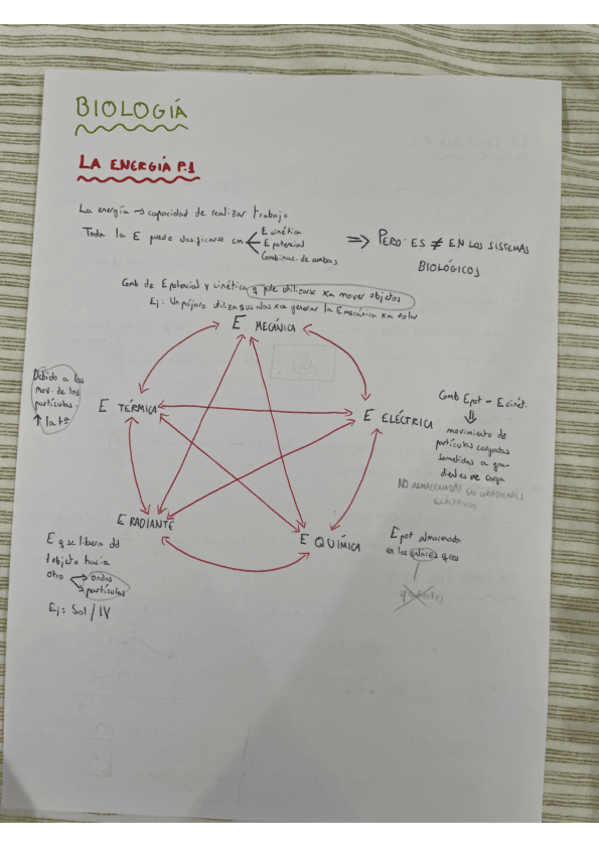 BIOLOGÍA
LA ENERGÍA P.1
La energía → capacidad de realizar trabajo
Toda la E puede clasificarse en
E cinética
E potencial
Combinac. de ambas
⇒ PERO: ES ≠ EN LOS SISTEMAS
BIOLÓGICOS
Comb de E potencial y cinética q pde utilizarse xa mover objetos
Ej: Un pájaro utiliza sus alas xa generar la E mecánica xa volar
E MECÁNICA
Debido a los
mov. de las
partículas
↑ la tª
E TÉRMICA
E ELÉCTRICA
Comb Epot - E cinét.
⇓
movimiento de
partículas cargadas
sometidas a gra-
dientes de carga
NO ALMACENADAS EN GRADIENTES
E RADIANTE
E q se libera dd
1 objeto hacia
otro → ondas
→ partículas
Ej: Sol / IV
E QUÍMICA
Epot almacenada
en los enlaces qcos